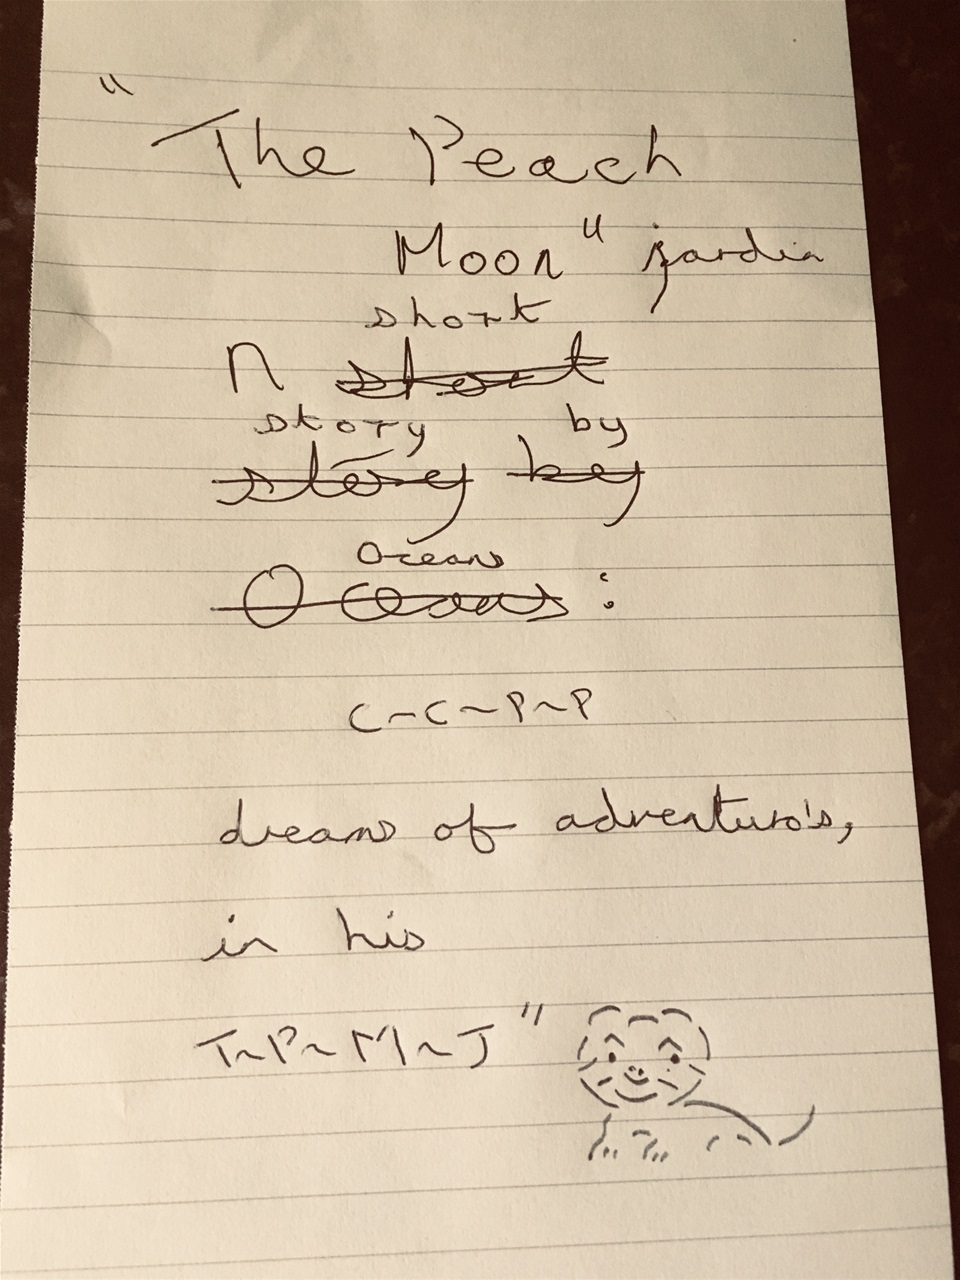 "The Peach
Moon" jardin
short
n short
story by
story by
Oceans
Oceans :
C~C~P~P
dreams of adventuro's,
in his
T~P~M~J"